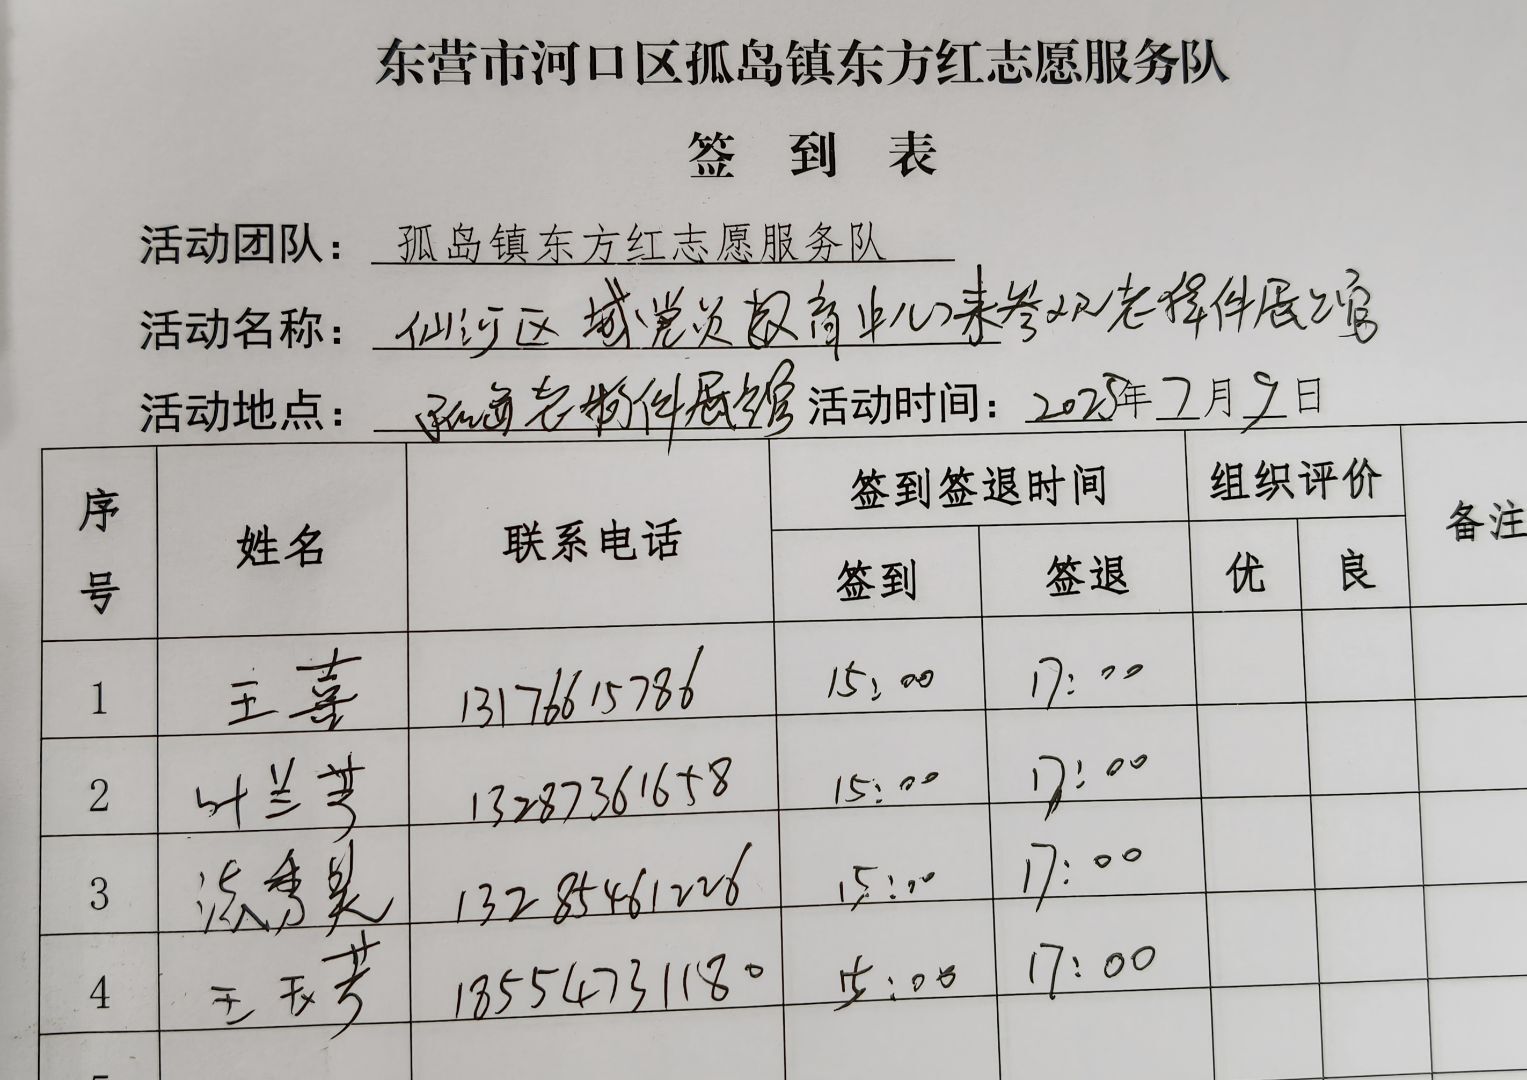 东营市河口区孤岛镇东方红志愿服务队
签 到 表
活动团队： 孤岛镇东方红志愿服务队
活动名称： 仙河区域党员教育中心来参观老物件展馆
活动地点： 孤岛老物件展馆 活动时间： 2025年7月9日
序号 姓名 联系电话 签到签退时间 组织评价 备注
签到 签退 优 良
1 王喜 13176615786 15:00 17:00
2 叶兰芳 13287361658 15:00 17:00
3 13285461226 15:00 17:00
4 王玉芳 18554731180 15:00 17:00